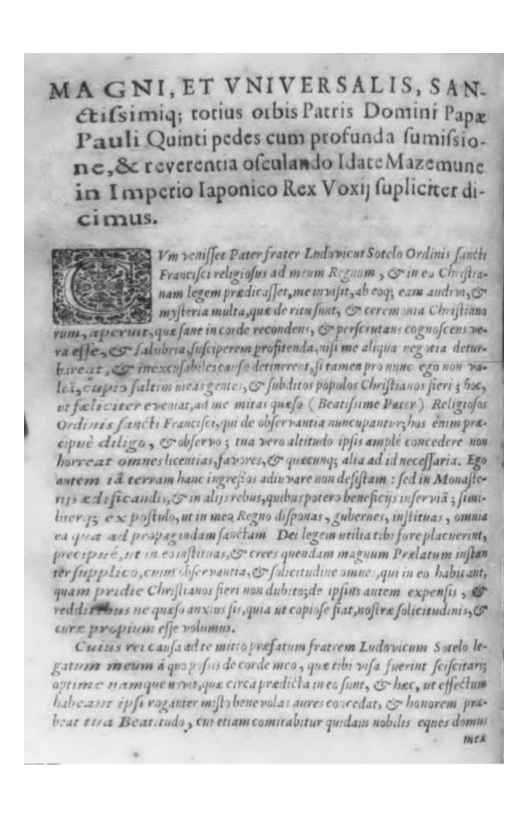 MAGNI, ET VNIVERSALIS, SAN-
ctissimiq; totius orbis Patris Domini Papæ
Pauli Quinti pedes cum profunda sumissio-
ne, & reverentia osculando Idate Mazemune
in Imperio Iaponico Rex Voxij supliciter di-
cimus.
CVm venisset Pater frater Ludovicus Sotelo Ordinis sancti
Francisci religiosus ad meum Regnum, & in eo Christia-
nam legem prædicasset, me invisit, ab eoq; eam audivi, &
mysteria multa, quæ de ritu sunt, & ceremonia Christiano
rum, aperuit, quæ sane in corde recondens, & perscrutans cognoscens ve-
ra esse, & salubria, susciperem profitenda, nisi me aliqua negotia detur-
bareat, & inexcusabiles causæ detinerent, si tamen pro nunc ego non va-
leā, cupio saltim meas gentes, & subditos populos Christianos fieri; & hoc,
ut fæliciter eveniat, ad me mitas quæso (Beatissime Pater) Religiosos
Ordinis sancti Francisci, qui de observantia nuncupantur; hos enim præ-
cipuè diligo, & observo; tua vero altitudo ipsis amplè concedere non
horreat omnes licentias, favores, & quæcunq; alia ad id necessaria. Ego
autem iā terram hanc ingressos adiuvare non desistam: sed in Monaste-
rijs ædificandis, & in alijs rebus, quibus potero beneficijs inserviā; simi-
literq; expostulo, ut in meo Regno disponas, gubernes, instituas, omnia
ea quæ ad propagandam sanctam Dei legem utilia tibi fore placuerint,
precipuè, ut in eo instituas, & crees quendam magnum Prælatum instan
ter supplico, cuius observantia, & solicitudine omnes, qui in eo habitant,
quam pridie Christianos fieri non dubito; de ipsius autem expensis, &
redditibus ne quæso anxius sis, quia ut copiose fiat, nostræ solicitudinis, &
curæ propium esse volumus.
Cuius rei causa ad te mitto præfatum fratrem Ludovicum Sotelo le-
gatum meum à quo possis de corde meo, quæ tibi visa fuerint sciscitari;
optime namque novit, quæ circa prædicta in eo sunt, & hæc, ut effectum
habeant ipsi roganter misto benevolas aures concedat, & honorem præ-
beat tua Beatitudo, cui etiam comitabitur quidam nobilis eques domus
meæ